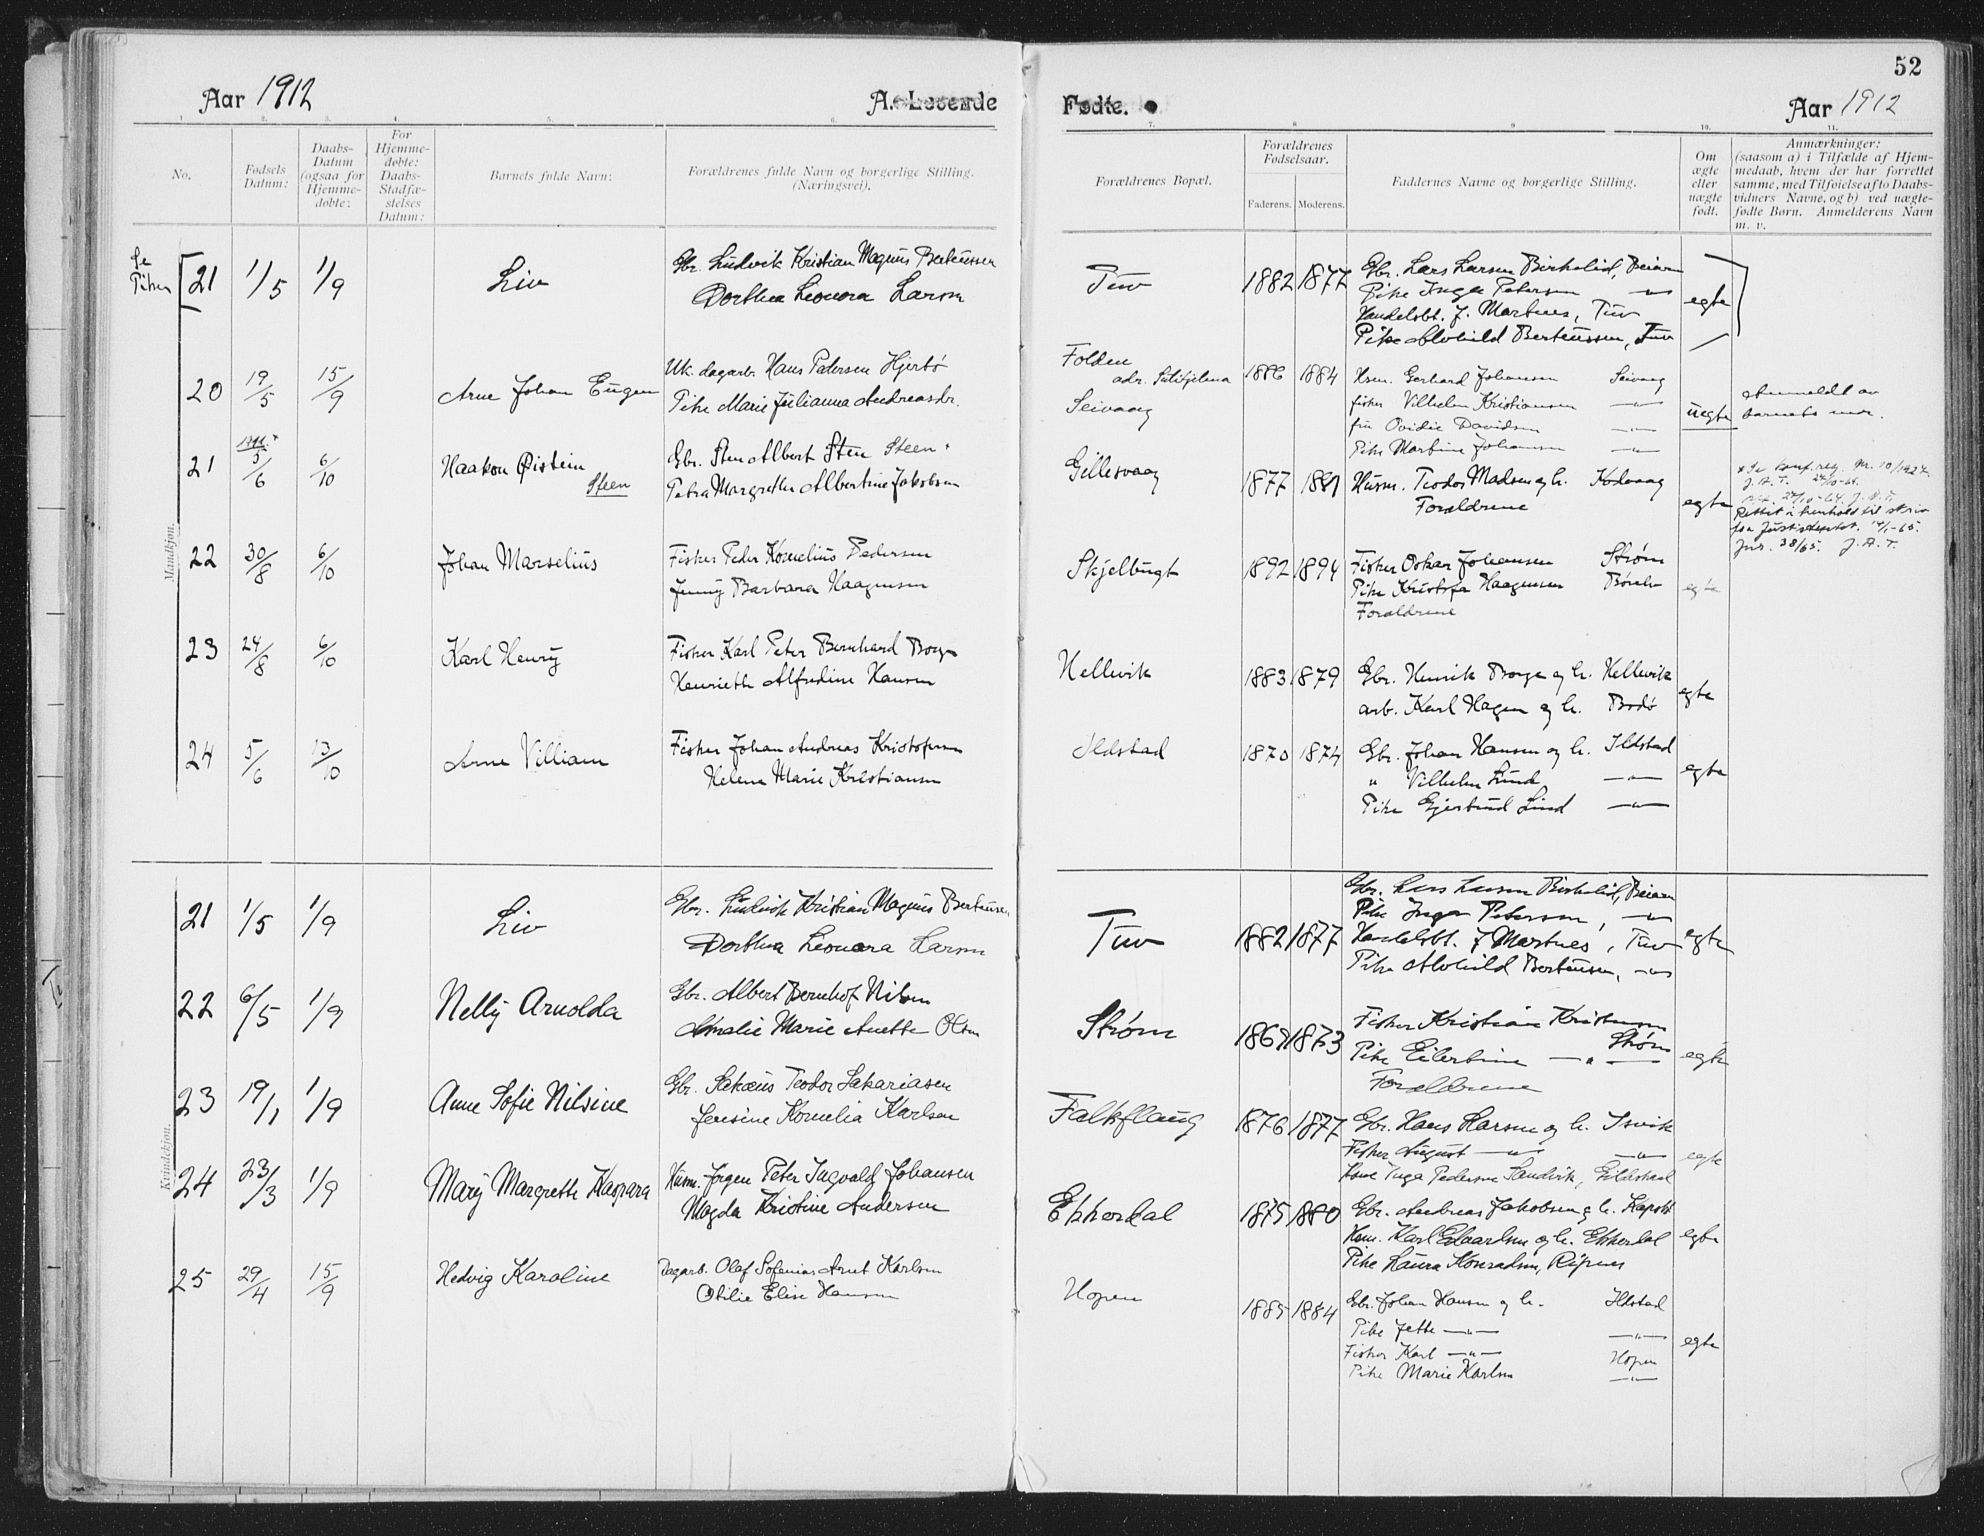 52
Aar 1912
A. Levende
Fødte.
Aar 1912
1. 2. 3. 4. 5. 6. 7. 8. 9. 10. 11.
No.
Fødsels Datum:
Daabs-Datum (ogsaa for Hjemme-døbte:
For Hjemme-døbte: Daabs-Stadfæ-stelses Datum:
Barnets fulde Navn:
Forældrenes fulde Navn og borgerlige Stilling. (Næringsvei).
Forældrenes Bopæl.
Forældrenes Fødselsaar.
Faderens. Moderens.
Faddernes Navne og borgerlige Stilling.
Om ægte eller uægte født.
Anmærkninger:
(saasom a) i Tilfælde af Hjem-
medaab, hvem der har forrettet
samme, med Tilføielse af to Daabs-
vidners Navne, og b) ved uægte-
fødte Børn. Anmelderens Navn
m. v.
Mandkjøn.
Se Piker
21 1/5 1/9 Liv
Gbr. Ludvik Kristian Magnus Berteussen
Dorthea Leonora Larsen
Tuv 1882 1877
Gbr. Lars Larsen Birkelid, Beiarn
Pike Inga Petersen — " —
Handelsbt. J. Martnes, Tuv
Pike Alvhild Berteussen, Tuv
egte
20 19/5 15/9 Arne Johan Eugen
Uk. dagarb. Hans Pedersen Hjertø
Pike Marie Julianna Andreasdr.
Folden
adr. Sulitjelma
Seivaag
1886 1884
Hsm. Gerhard Johansen Seivaag
fisker Vilhelm Kristiansen — " —
fru Ovidie Davidsen — " —
Pike Martine Johansen — " —
uegte
Anmeldt av
barnets mor.
21 1911 + 5/6 6/10 Haakon Øistein
Steen
Gbr. Sten Albert Sten Steen +
Petra Margrethe Albertine Jakobsen
Gillesvaag 1877 1881
Husm. Teodor Madsen og h. Kodvaag
Forældrene
egte
x Se konf.reg. Nr. 10/1927.
J. A. T.
Rettet i henhold til skriv
fra Justisdeptet. 14/1-65.
Jnr. 38/65. J. A. T.
22 30/8 6/10 Johan Marselius
Fisker Peder Kornelius Pedersen
Jenny Barbara Haagensen
Skjelbugt 1892 1894
Fisker Oskar Johansen Strøm
Pike Kristofa Haagensen
Forældrene
egte
23 24/8 6/10 Karl Henry
Fisker Karl Peter Bernhard Borge
Henriette Alfredine Hansen
Hellevik 1883 1879
Gbr. Henrik Borge og h. Hellevik
arb. Karl Hagen og h. Bodø
egte
24 5/6 13/10 Arne Villiam
Fisker Johan Andreas Kristofersen
Helene Marie Kristiansen
Ildstad 1870 1874
Gbr. Johan Hansen og h. Ildstad
" Vilhelm Lund — " —
Pike Gjertrud Lind — " —
egte
Kvindekjøn.
21 1/5 1/9 Liv
Gbr. Ludvik Kristian Magnus Berteusen
Dorthea Leonora Larsen
Tuv 1882 1877
Gbr. Lars Larsen Birkelid, Beiarn
Pike Inga Petersen, — " —
Handelsbt. J Martnes, Tuv
Pike Alvhild Berteusen, — " —
egte
22 6/5 1/9 Nelly Arnolda
Gbr. Albert Bernhof Nilsen
Amalie Marie Anette Olsen
Strøm 1869 1873
Fisker Kristian Kristensen
Strøm
Pike Eilertine — " —
Forældrene
egte
23 19/1 1/9 Anne Sofie Nilsine
Gbr. Sakæus Teodor Sakariasen
Jensine Kornelia Karlsen
Falkflaug 1876 1877
Gbr. Hans Larsen og h. Isvik
Fisker August — " — — " —
Kone Inga Pedersen Sandvik, Eidstad
egte
24 23/3 1/9 Mary Margrethe Kaspara
Husm. Jørgen Peter Ingvald Johansen
Magda Kristine Andersen
Ekkerdal 1875 1880
Gbr. Andreas Jakobsen og h.
Hsm. Karl Edvardsen og h. Ekkerdal
Pike Laura Konradsen, Ripnes
egte
25 29/4 15/9 Hedvig Karoline
Dagarb. Olaf Sofenias Arnt Karlsen
Otilie Elise Hansen
Hopen 1885 1884
Gbr. Johan Hansen og h. Ildstad
Pike Jette — " — — " —
Fisker Karl — " — Hopen
Pike Marie Karlsen — " —
egte